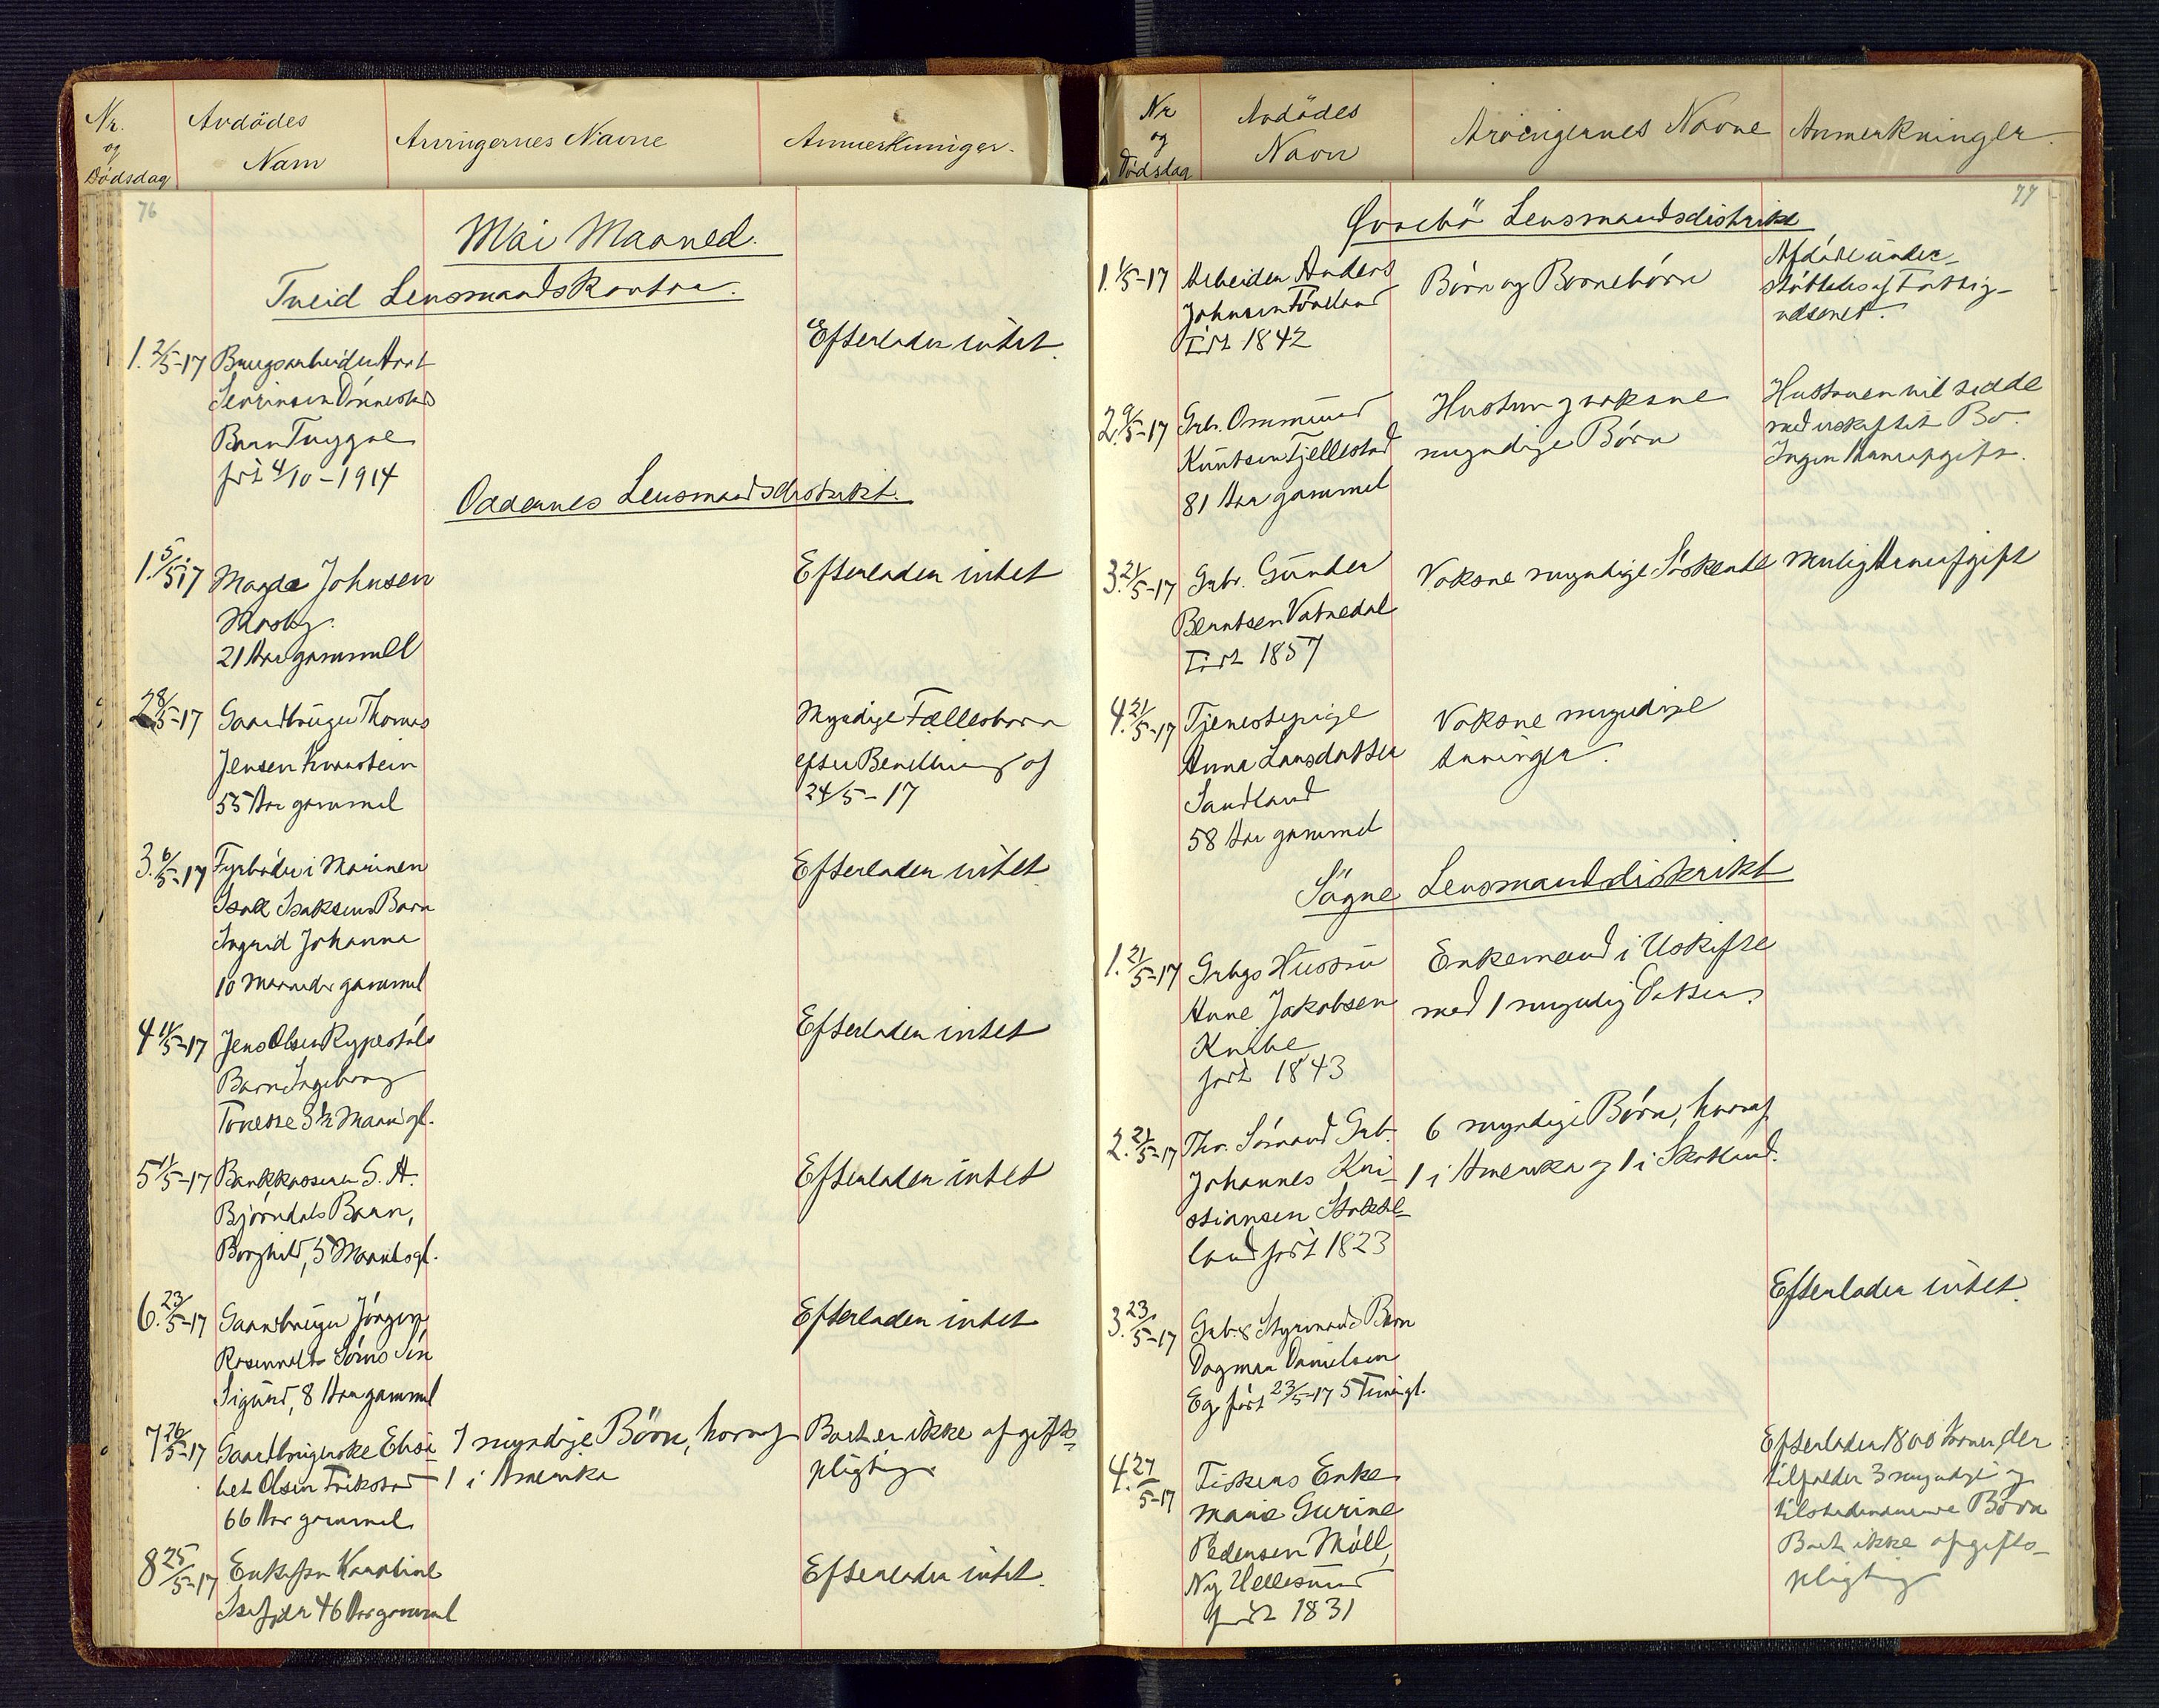 Nr. og Dødsdag
Avdödes Navn
Arvingernes Navne
Anmerkninger.
76
Mai Maaned.
Tveid Lensmandskontor.
1. 2/5-17
Brugsarbeider
Severinsen Dønnestad
Barn Trygve
født 4/10-1914
Efterlader intet.
Oddernes Lensmandsdistrikt.
1. 5/5 17
Magda Johnsen
Mosby.
21 Aar gammel
Efterlader intet
2 8/5-17
Gaardbruger Thomas
Jensen Kvarstein
55 Aar gammel
Myndige Fællesbarn
efter Bevilling af
24/5-17
3. 6/5-17
Fyrbøder i Marinen
Isak Isaksens Barn
Ingrid Johanna
10 Maaneder gammel
Efterlader intet
4 11/5-17
Jens Olsen Rypestøls
Barn Ingeborg
Tonette 3½ Maan gl.
Efterlader intet
5 11/5-17
Bankkasserer S. A.
Bjørndals Barn,
Borghild, 5 Maaneds gl.
Efterlader intet
6. 23/5-17
Gaardbruger Jørgen
Rosenvolds Søns Søn
Sigurd, 8 Aar gammel
Efterlader intet
7 26/5-17
Gaardbrugerske Elisa-
bet Olsen Frikstad
66 Aar gammel
7 myndige Börn, hvoraf
1 i Amerika
Boet er ikke afgifts-
pligtig.
8 25/5-17
Enkefru Karoline
46 Aar gammel
Efterlader intet.
Nr og Dødsdag
Avdödes Navn
Arvingernes Navne
Anmerkninger.
77
Øvrebö Lensmandsdistrikt
1. 1/5-17
Arbeider Anders
Johnsen Føreland
Født 1842
Börn og Barnebörn
Afdøde under-
støttedes af Fattig-
væsenet.
2. 9/5-17
Grb. Ommund
Knutsen Fjellestad
81 Aar gammel
Hustru og voksne
myndige Börn
Hustruen vil sidde
med uskiftet Bo.
Ingen Arveafgift.
3. 21/5-17
Grbr. Gunder
Berntsen Vatnedal
Født 1857
Voksne myndige Søskende
Mulig Arveafgift
4. 21/5-17
Tjenestepige
Anna Larsdatter
Sandland
58 Aar gammel
Voksne myndige
Arvinger.
Sögne Lensmandsdistrikt
1. 21/5-17
Grbgs Hustru
Anne Jakobsen
Knibe
født 1843
Enkemand i Uskifte
med 1 myndig Datter.
2. 21/5-17
Fhv. Sømand Grb.
Johannes Kri-
stiansen Stokke-
land født 1823
6 myndige Börn, hvoraf
1 i Amerika og 1 i Skotland.
3. 23/5-17
Grb. & Styrmands Barn
Dagmar Danielsen
Eg født 23/5-17 5 Tim. gl.
Efterlader intet.
4. 27/5-17
Fiskers Enke
Marie Gurine
Pedersen Møll,
Ny Hellesund
født 1831
Efterlader 1800 Kroner, der
tilfalder 3 myndige og
tilstedeværende Börn
Boet ikke afgifts-
pligtig